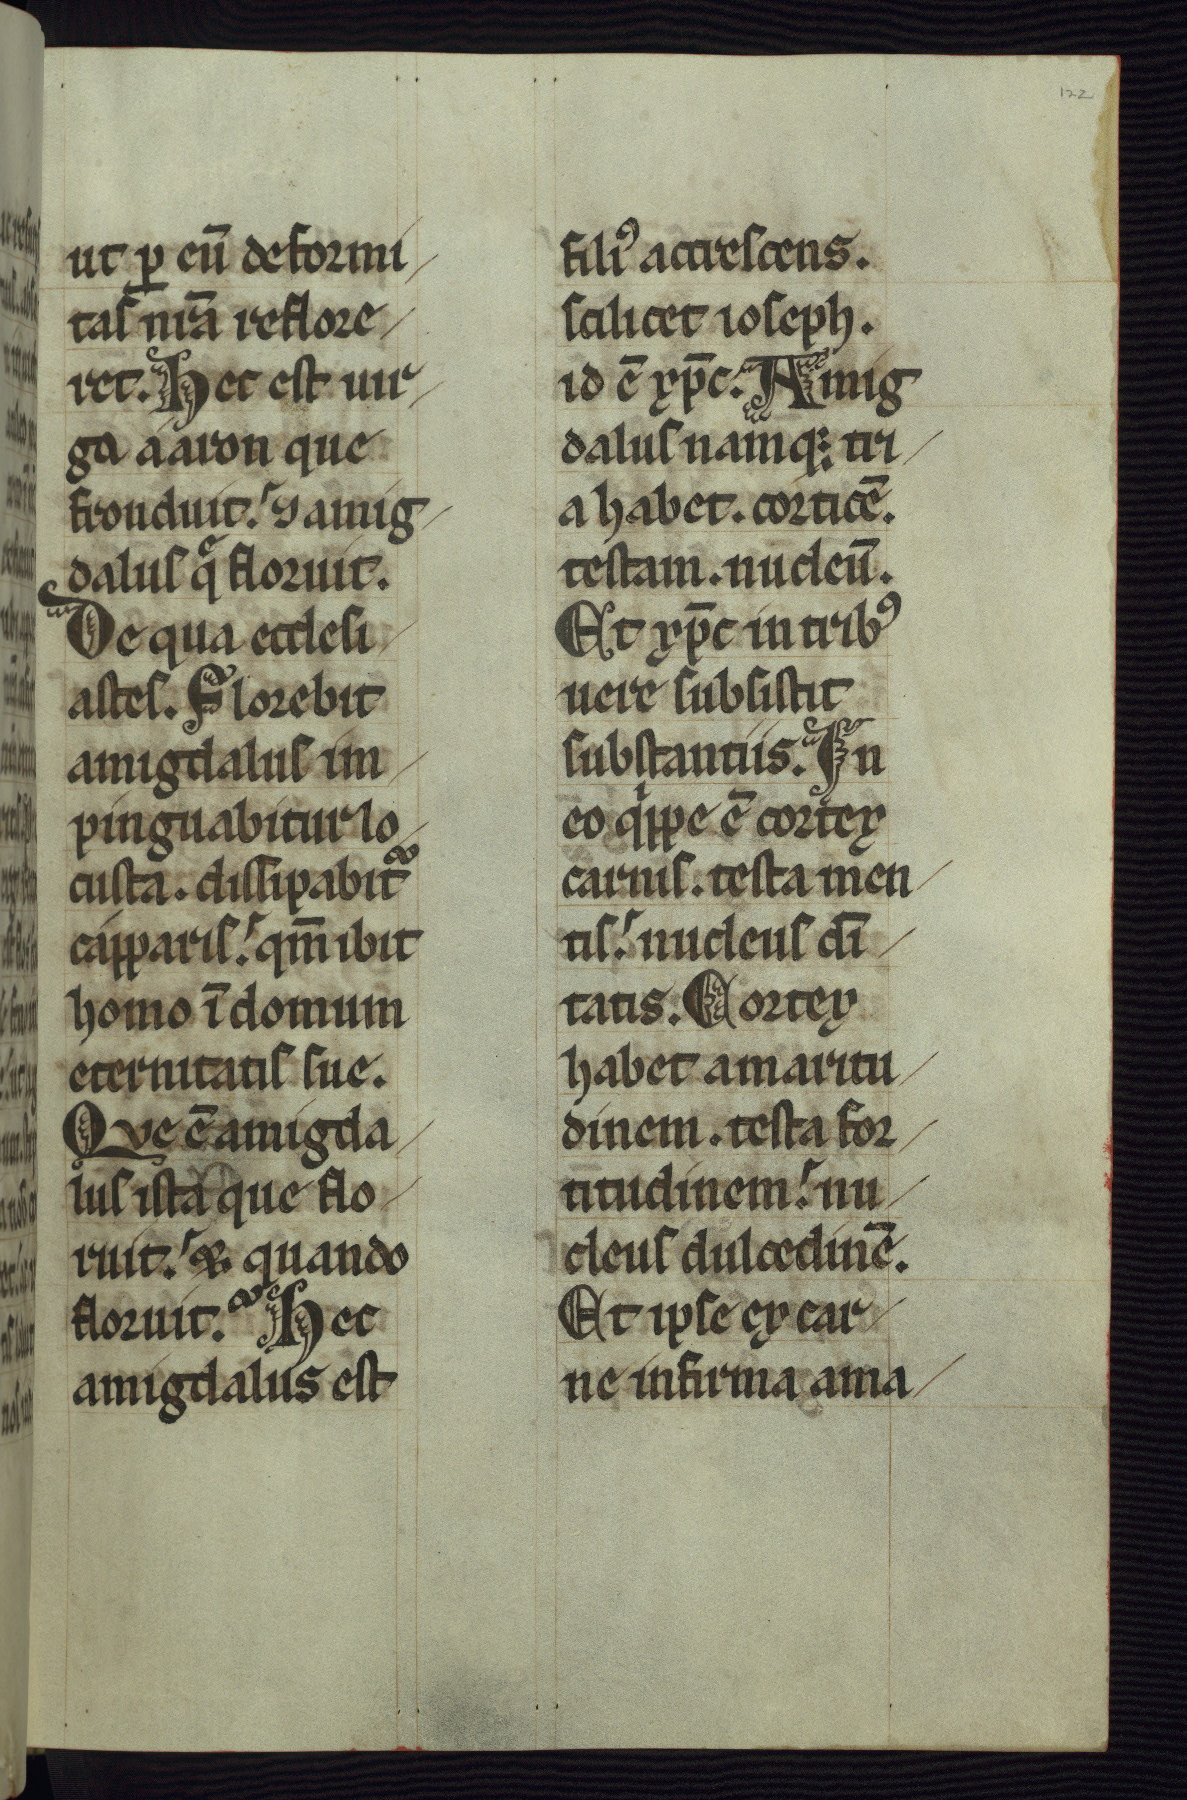 122
ut ꝑ eū deformi/
tas nr̄a reflore/
ret. Hec est uir/
ga aaron que
fronduit. ⁊ amig/
dalus q̄ floruit.
De qua ecclesi/
astes. Florebit
amigdalus im/
pinguabitur lo/
custa. dissipabit᷑
capparis. qm̄ ibit
homo ī domum
eternitatis sue.
Que ē amigda/
lus ista que flo/
ruit. ⁊ quando
floruit. Hec
amigdalus est
filiꝰ accrescens.
scilicet ioseph.
id ē xp̄c. Amig
dalus namq; tri/
a habet. corticē.
testam. nucleū.
Et xp̄c in tribꝰ
uere subsistit
substantiis. In
eo qͥppe ē cortex
carnis. testa men/
tis. nucleus di̅/
tatis. Cortex
habet amaritu/
dinem. testa for/
titudinem. nu/
cleus dulcedinē.
Et ipse ex car/
ne infirma ama/